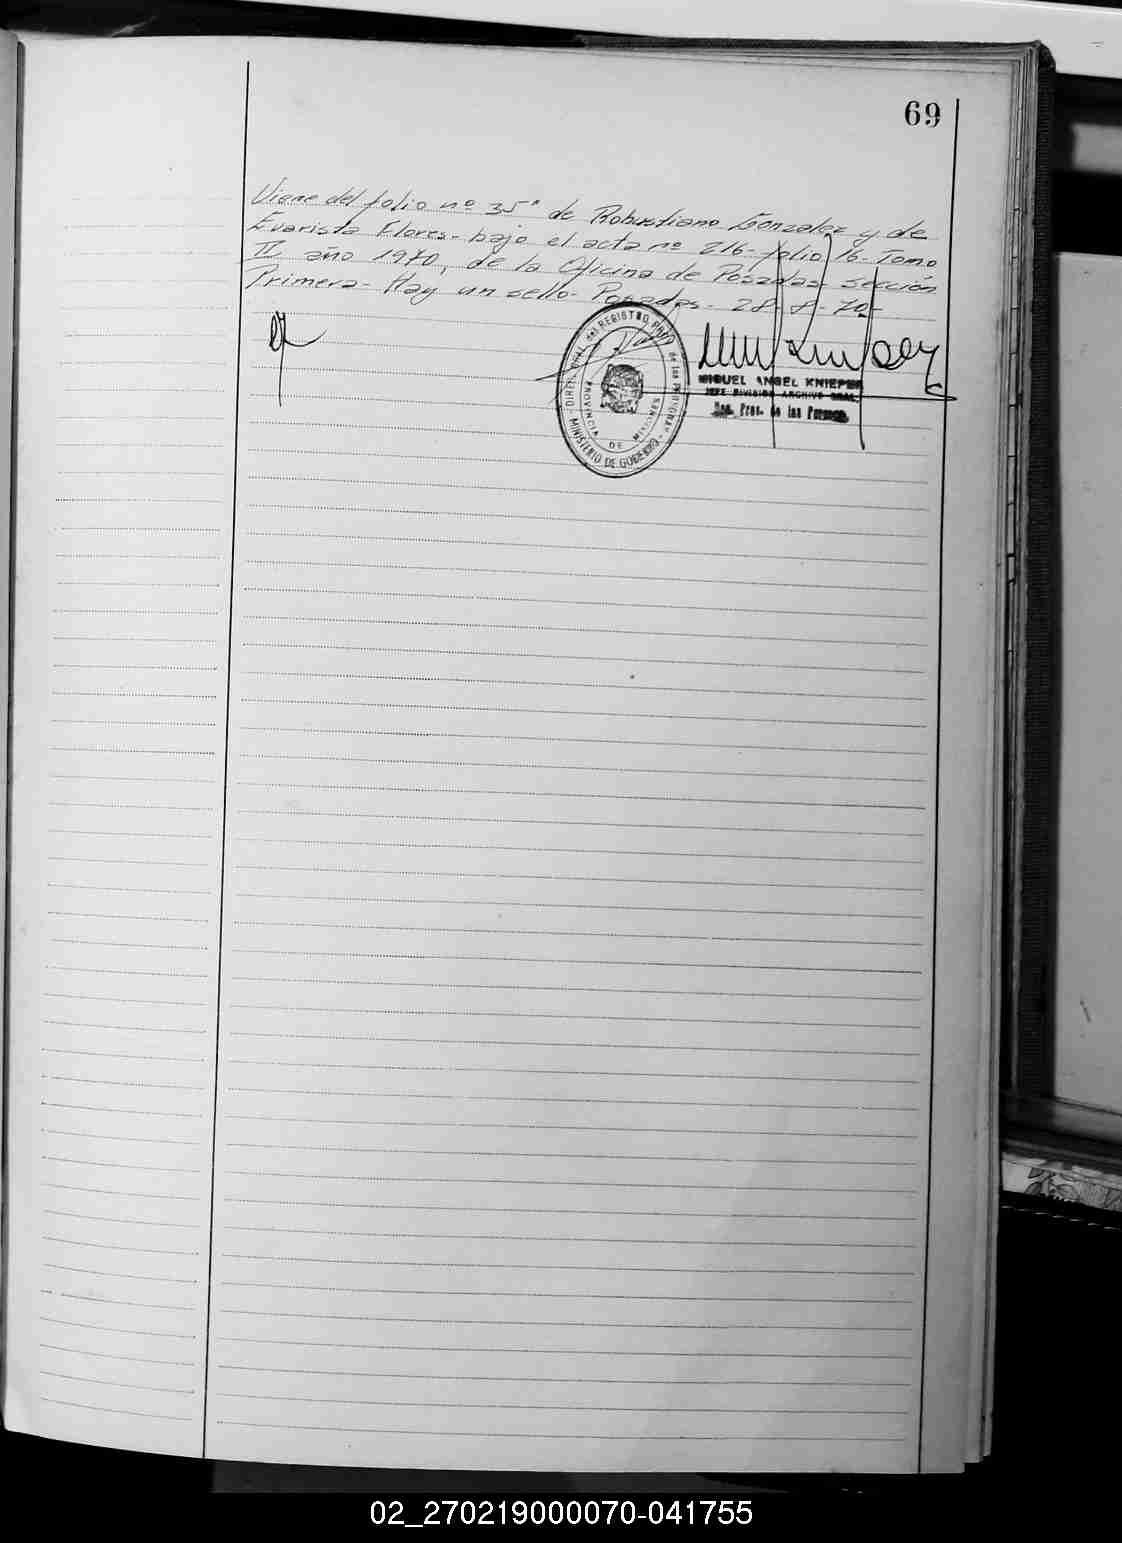 69
Viene del folio nº 35" de Robustiano Gonzalez y de
Evarista Flores - bajo el acta nº 216 - folio 16 - Tomo
II año 1970, de la Oficina de Posadas sección
Primera - Hay un sello - Posadas - 28 - 8 - 70 -
DIREC. GRAL. del REGISTRO PROV. de las PERSONAS
PROVINCIA DE MISIONES
MINISTERIO DE GOBIERNO
MIGUEL ANGEL KNIEPER
JEFE DIVISION ARCHIVO GRAL.
Reg. Prov. de las Personas
02_270219000070-041755